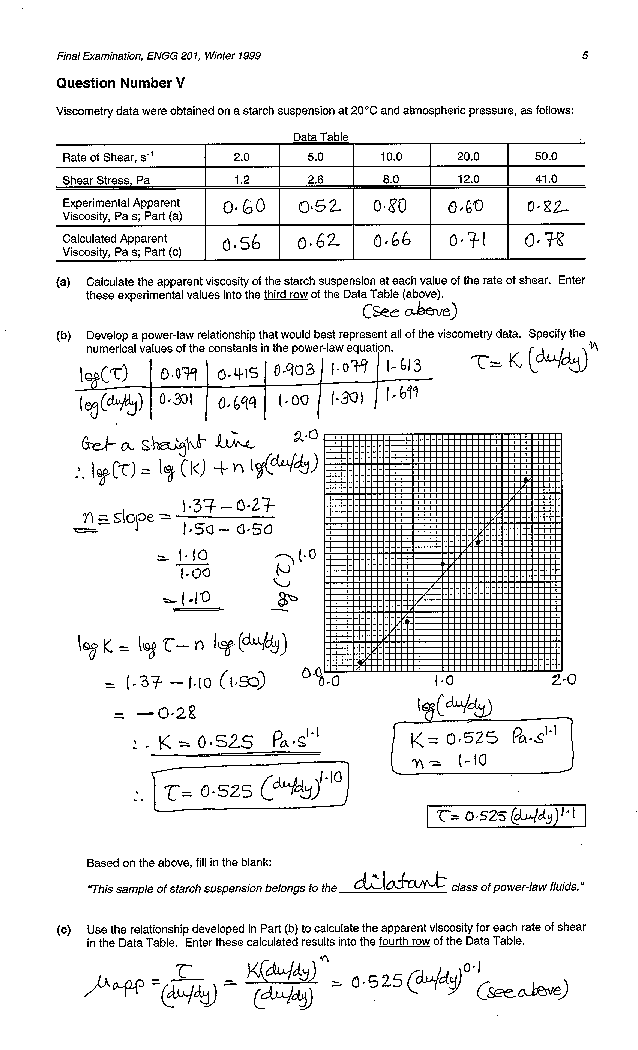 Final Examination, ENGG 201, Winter 1999 5
Question Number V
Viscometry data were obtained on a starch suspension at 20°C and atmospheric pressure, as follows:
Data Table
Rate of Shear, s⁻¹ 2.0 5.0 10.0 20.0 50.0
Shear Stress, Pa 1.2 2.6 8.0 12.0 41.0
Experimental Apparent
Viscosity, Pa s; Part (a) 0.60 0.52 0.80 0.60 0.82
Calculated Apparent
Viscosity, Pa s; Part (c) 0.56 0.62 0.66 0.71 0.78
(a) Calculate the apparent viscosity of the starch suspension at each value of the rate of shear. Enter
these experimental values into the third row of the Data Table (above).
(See above)
(b) Develop a power-law relationship that would best represent all of the viscometry data. Specify the
numerical values of the constants in the power-law equation.
τ = K (du/dy)ⁿ
log(τ) 0.079 0.415 0.903 1.079 1.613
log(du/dy) 0.301 0.699 1.00 1.301 1.699
Get a straight line
∴ log(τ) = log(K) + n log(du/dy)
n = slope = 1.37 – 0.27
1.50 – 0.50
= 1.10
1.00
= 1.10
2.0
1.0
log(τ)
0.0
0.0 1.0 2.0
log(du/dy)
log K = log τ – n log(du/dy)
= 1.37 – 1.10 (1.50)
= –0.28
∴ K = 0.525 Pa·s¹·¹
K = 0.525 Pa·s¹·¹
n = 1.10
∴ τ = 0.525 (du/dy)¹·¹⁰
τ = 0.525 (du/dy)¹·¹
Based on the above, fill in the blank:
"This sample of starch suspension belongs to the dilatant class of power-law fluids."
(c) Use the relationship developed in Part (b) to calculate the apparent viscosity for each rate of shear
in the Data Table. Enter these calculated results into the fourth row of the Data Table.
μapp = τ/(du/dy) = K(du/dy)ⁿ/(du/dy) = 0.525 (du/dy)⁰·¹ (see above)